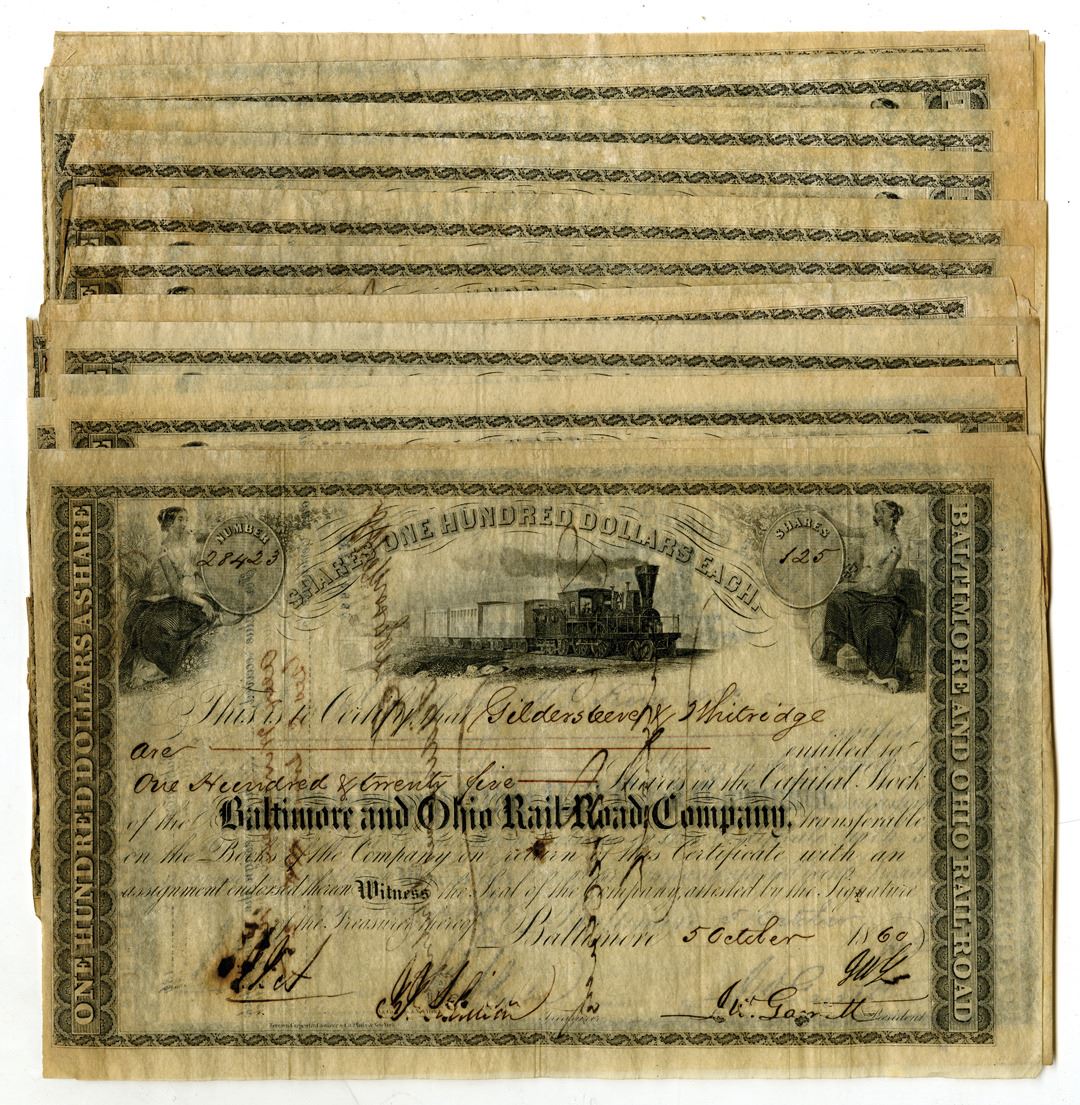 SHARES ONE HUNDRED DOLLARS EACH.
NUMBER
28423
SHARES
125
ONE HUNDRED DOLLARS A SHARE
BALTIMORE AND OHIO RAILROAD
This is to Certify, that Gildersleeve & Whitridge
are entitled to
One Hundred & twenty five Shares in the Capital Stock
of the Baltimore and Ohio Rail-Road Company, transferable
on the Books of the Company on return of this Certificate with an
assignment endorsed thereon Witness the Seal of the Company, attested by the Signature
of the Treasurer thereof Baltimore 5 October 1860
JWG
Treasurer
J. W. Garrett President